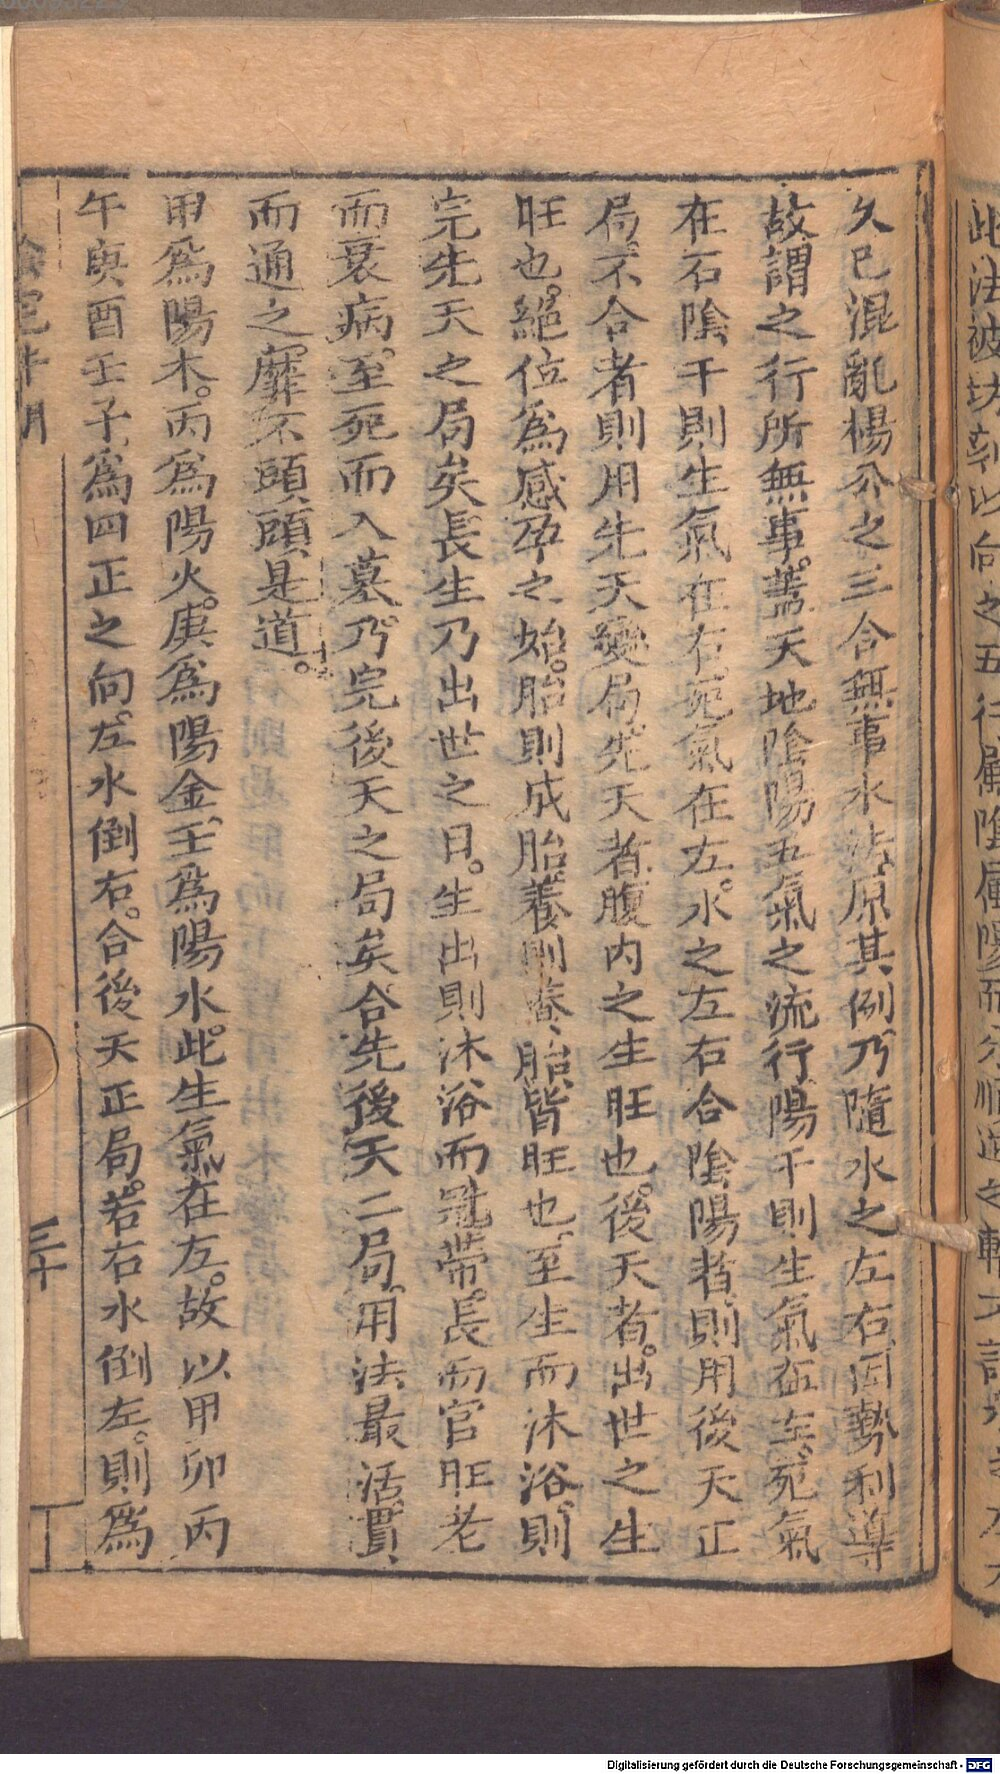 久已混亂楊公之三合無事水法原其例乃隨水之左右因勢利導
故謂之行所無事蓋天地陰陽五氣之流行陽干則生氣在左死氣
在右陰干則生氣在右死氣在左水之左右合陰陽者則用後天正
局不合者則用先天變局先天者腹内之生旺也後天者出世之生
旺也絕位爲感孕之始胎則成胎養則養胎皆旺也至生而沐浴則
完先天之局矣長生乃出世之日生出則沐浴而冠帶長而官旺老
而衰病至死而入墓乃完後天之局矣合先後天二局用法最活貫
而通之靡不頭頭是道
甲爲陽木丙爲陽火庚爲陽金壬爲陽水此生氣在左故以甲卯丙
午庚酉壬子爲四正之向左水倒右合後天正局若右水倒左則爲
三十
此法被坊刻以向之五行屬陰屬陽而分順逆之
Digitalisierung gefördert durch die Deutsche Forschungsgemeinschaft - DFG